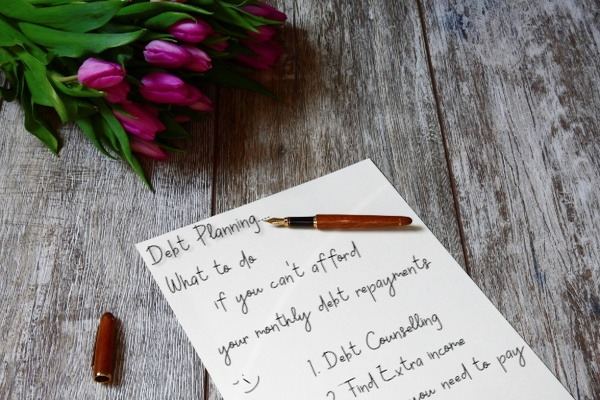 Debt Planning...
What to do
if you can't afford
your monthly debt repayments
:-)
1. Debt Counselling
2. Find Extra income
you need to pay